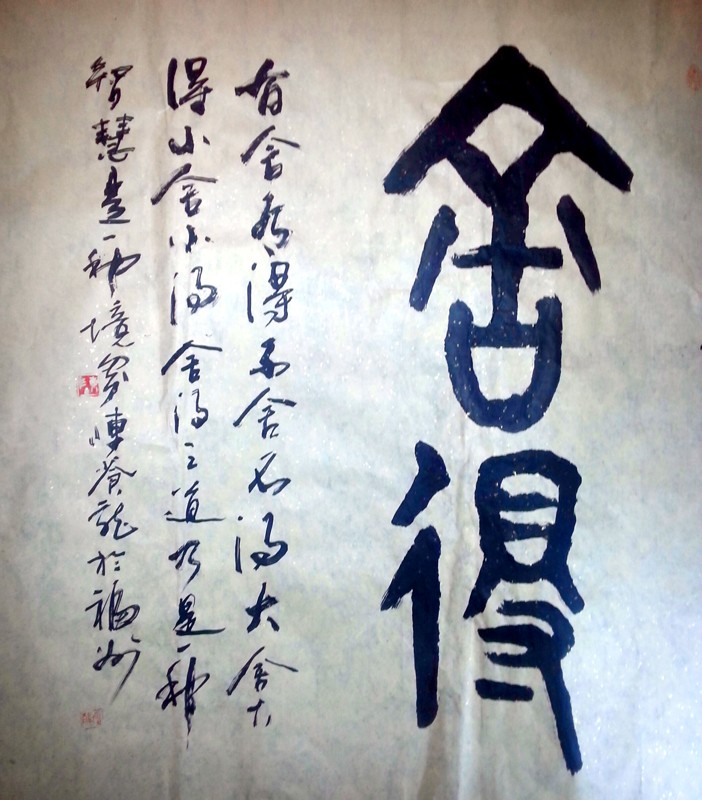 舍得
有舍有得不舍不得大舍大
得小舍小得舍得之道乃是一种
智慧是一种境界陳蒼龍於福州